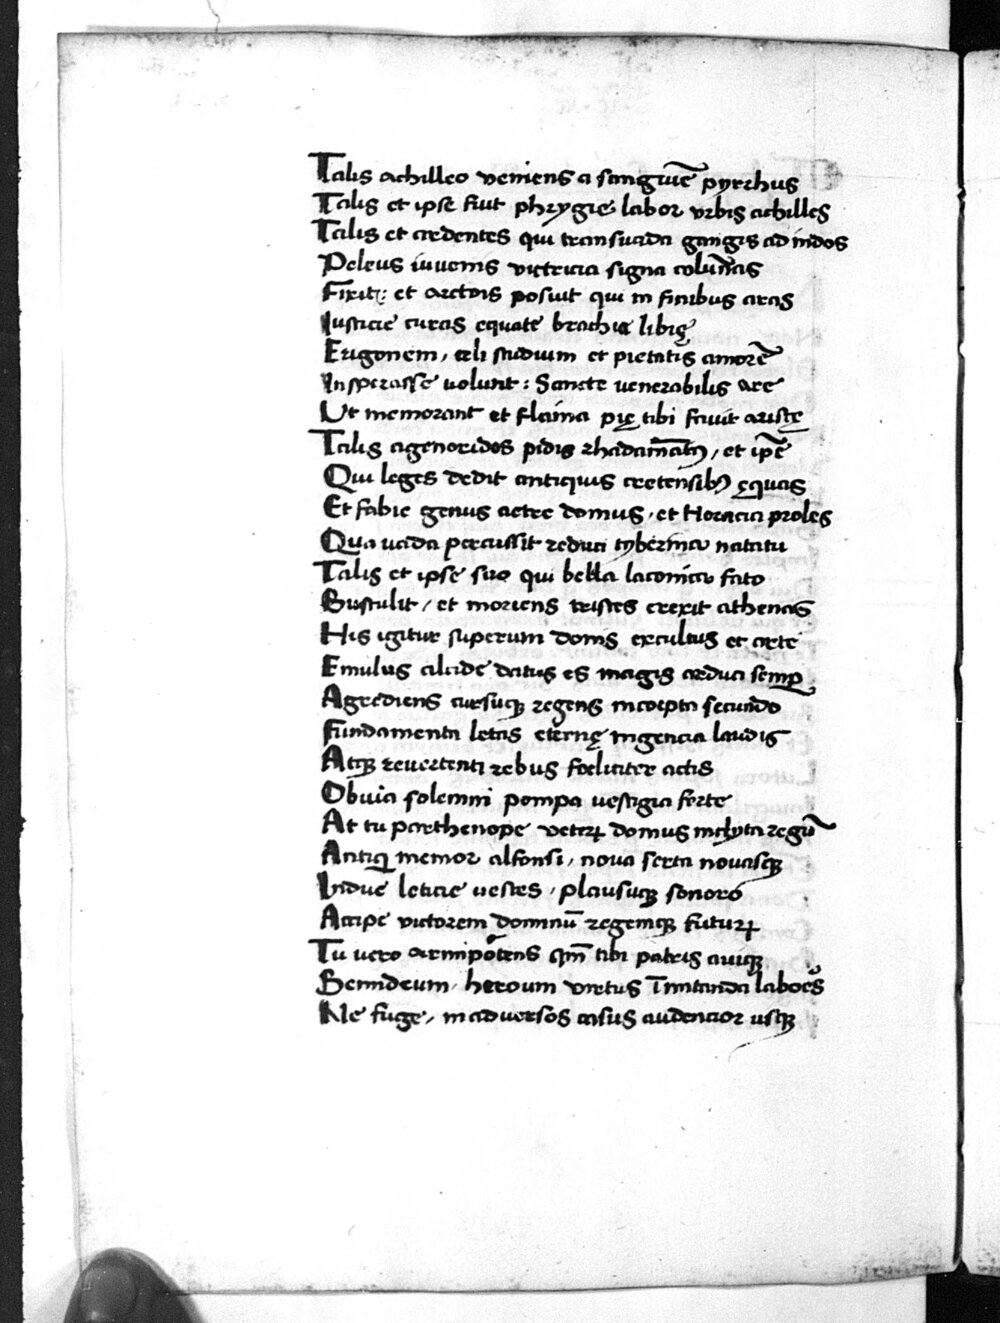 Talis achilleo veniens a sanguīe pyrrhus
Talis et ipse fuit phrygie labor vrbis achilles
Talis et ardentes qui transuada gangis ad indos
Peleus iuuenis victricia signa colūnas
Fixit: et arctois posuit qui in finibus aras
Iusticie curas equate brachia libię
Erigonem, celi studium et pietatis amorē
Insperasse uolunt: Sancte uenerabilis are
Ut memorant et flāma pię tibi fauit aristę
Talis agenoridos pidis rhadamātꝰ, et ip̄e
Qui leges dedit antiquis cretensibꝰ ęquas
Et fabie genus acree domus, et Horacia proles
Qua uada percussit reduci tyberina natatu
Talis et ipse suo qui bella laconica fato
Sustulit, et moriens tristes erexit athenas
His igitur superum donis excultus et arte
Emulus alcide datus es magis ardua semꝑ
Agrediens cursuqꝫ regens incoepta secundo
Fundamenta letas eternę ingencia laudis
Atqꝫ reuertenti rebus foeliciter actis
Obuia solemni pompa uestigia ferte
At tu parthenope veteꝝ domus inclyta regū
Antiqui memor alfonsi, noua serta nouasqꝫ
Indue leticie uestes, plausuqꝫ sonoro
Accipe victorem dominū regemqꝫ futuꝝ
Tu uero armipotens qm̄ tibi patris auiqꝫ
Semideum, heroum virtus īmitanda laboēs
Ne fuge, in aduersos casus audencior usqꝫ